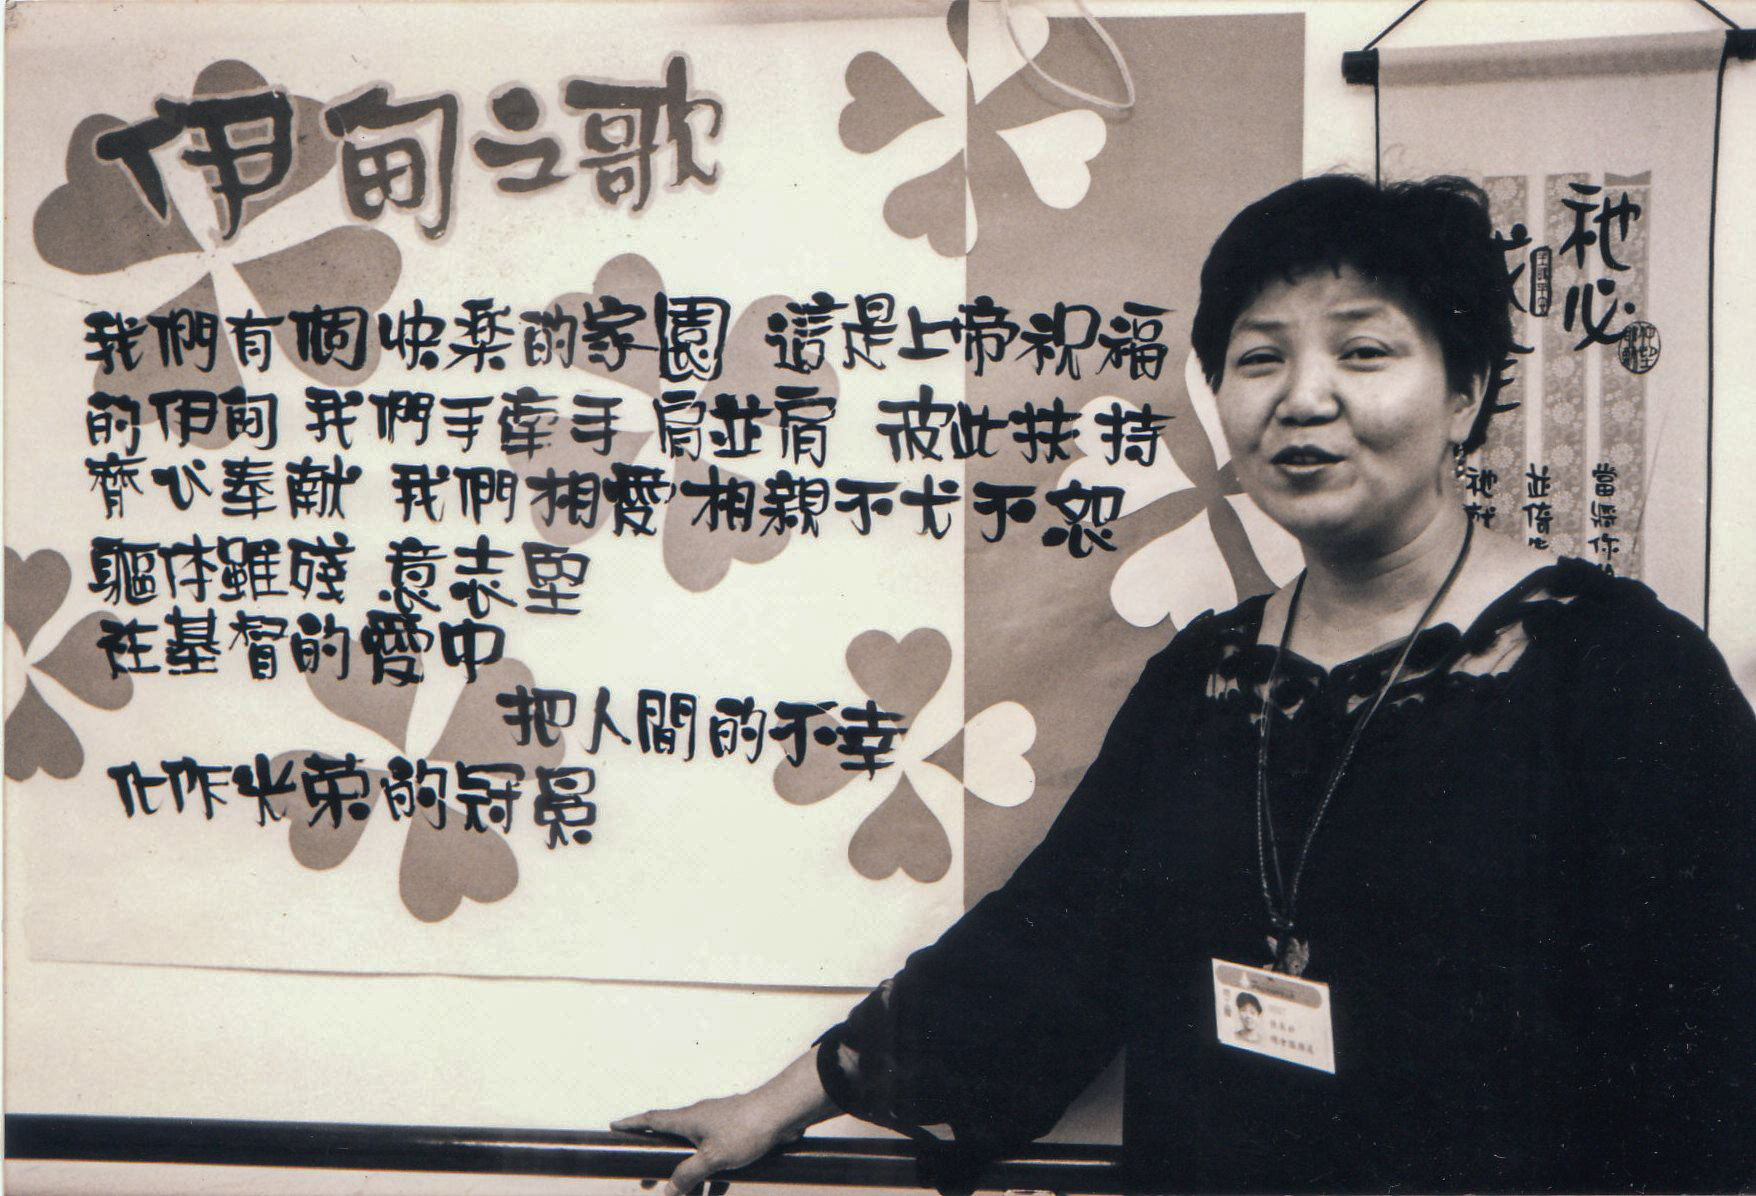 伊甸之歌
我們有個快楽的家園 這是上帝祝福
的伊甸 我們手牽手 肩並肩 彼此扶持
齊心奉献 我們相愛相親不尤不怨
軀体雖殘 意志堅
在基督的愛中
把人間的不幸
化作光荣的冠冕
祂必
成
當
並倚
祂就